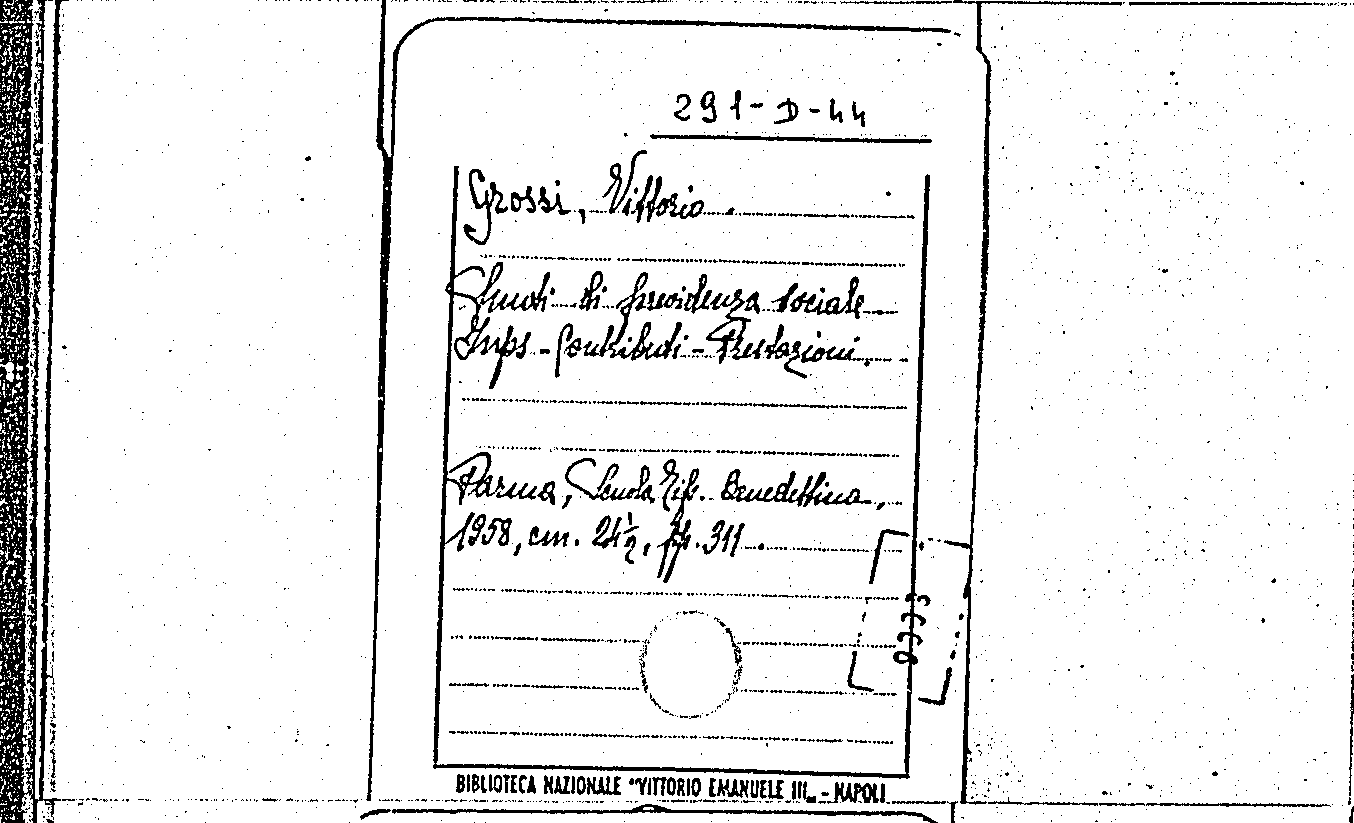 291-D-44
Grossi, Vittorio.
Studi di previdenza sociale
Inps - Contributi - Prestazioni.
Parma, Scuola Tip. Benedettina,
1958, cm. 24½, pp. 311.
BIBLIOTECA NAZIONALE "VITTORIO EMANUELE III„ - NAPOLI